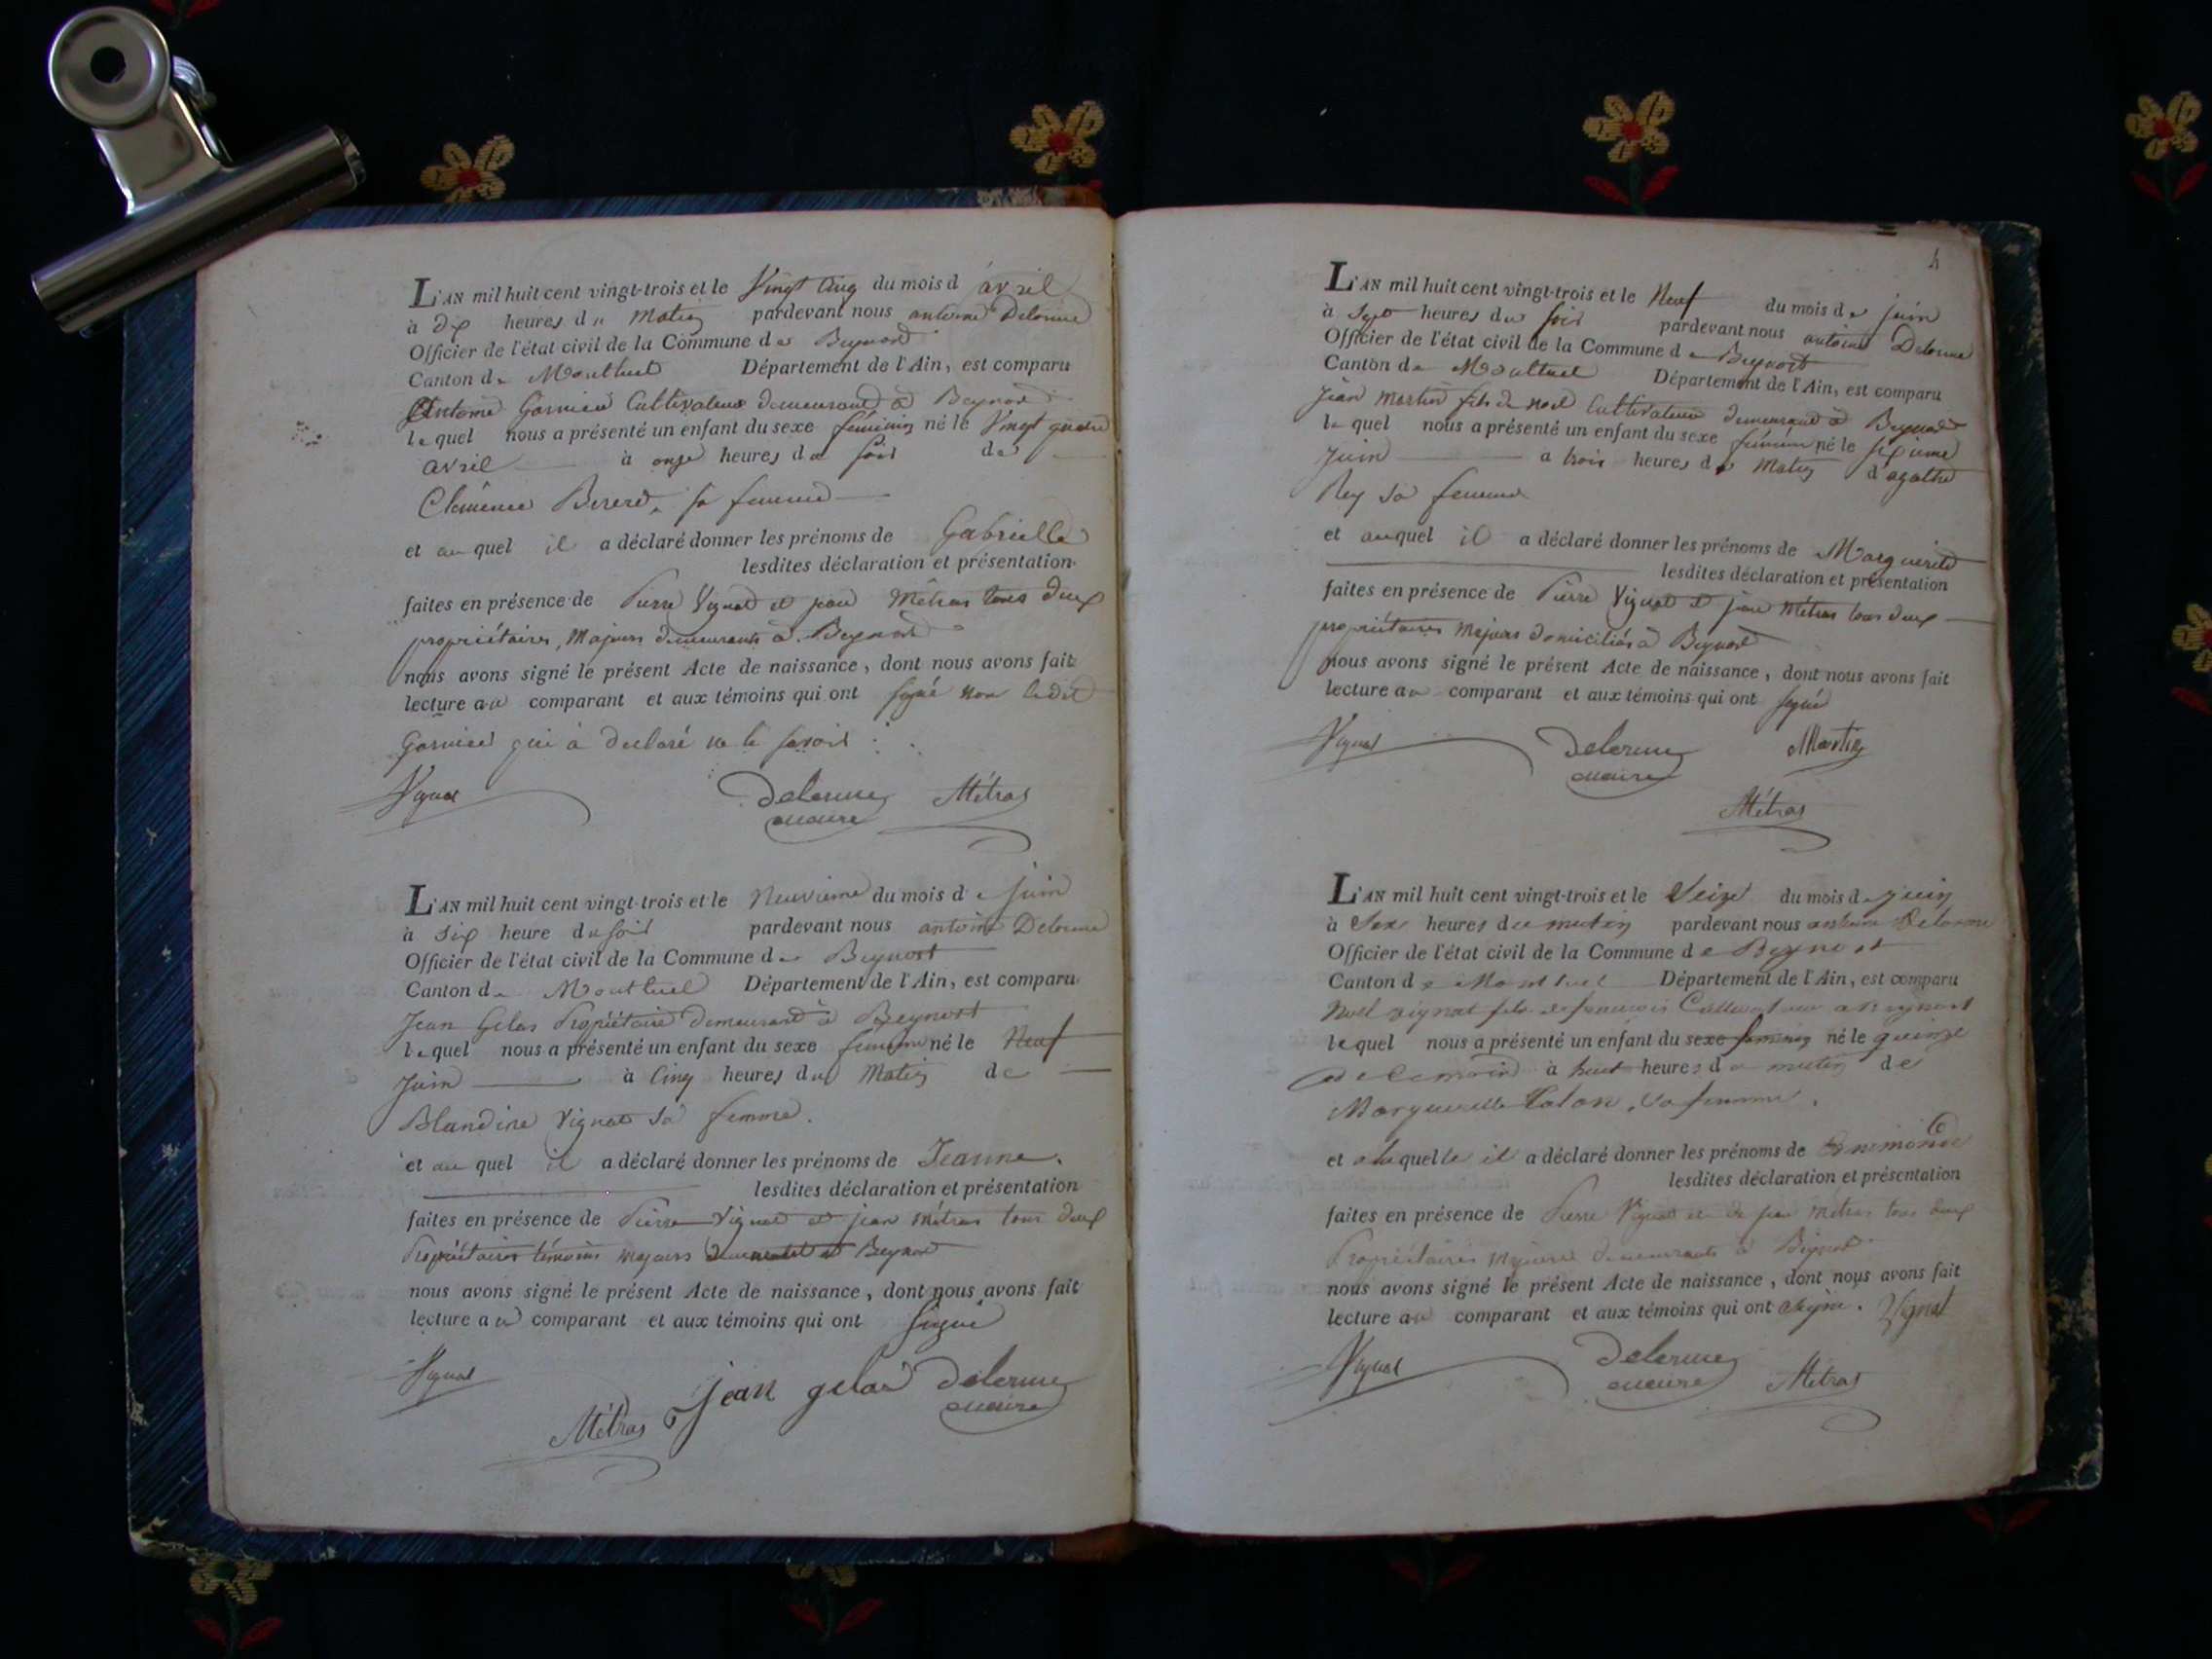 L'AN mil huit cent vingt-trois et le Vingt Cinq du mois d'avril
à dix heures du Matin pardevant nous antoine Delorme
Officier de l'état civil de la Commune de Beynost
Canton de Montluel Département de l'Ain, est comparu
Antoine Garnier Cultivateur demeurant à Beynost
lequel nous a présenté un enfant du sexe féminin né le Vingt quatre
avril à onze heures du soir de
Clémence sa femme
et auquel il a déclaré donner les prénoms de Gabrielle
lesdites déclaration et présentation
faites en présence de Pierre Vignat et jean Métras tous deux
propriétaires, Majeurs demeurants à Beynost
nous avons signé le présent Acte de naissance, dont nous avons fait
lecture au comparant et aux témoins qui ont signé non ledit
Garnier qui à déclaré ne le savoir
Vignat Delorme Métras
maire
L'AN mil huit cent vingt-trois et le Neuvième du mois de Juin
à six heure du soir pardevant nous antoine Delorme
Officier de l'état civil de la Commune de Beynost
Canton de Montluel Département de l'Ain, est comparu
Jean Gelas Propriétaire demeurant à Beynost
lequel nous a présenté un enfant du sexe féminin né le Neuf
Juin à Cinq heures du Matin de
Blandine Vignat sa femme.
et auquel il a déclaré donner les prénoms de Jeanne.
lesdites déclaration et présentation
faites en présence de Pierre Vignat et jean Métras tous deux
Propriétaires témoins majeurs à Beynost
nous avons signé le présent Acte de naissance, dont nous avons fait
lecture au comparant et aux témoins qui ont signé
Vignat
Métras jean gelas Delorme
maire
4
L'AN mil huit cent vingt-trois et le Neuf du mois de juin
à Sept heures du soir pardevant nous antoine Delorme
Officier de l'état civil de la Commune de Beynost
Canton de Montluel Département de l'Ain, est comparu
Jean Martin fils de noel Cultivateur demeurant à Beynost
lequel nous a présenté un enfant du sexe féminin né le sixieme
Juin a trois heures du Matin d'agathe
Rey sa femme
et auquel il a déclaré donner les prénoms de Marguerite
lesdites déclaration et présentation
faites en présence de Pierre Vignat et jean Métras tous deux
propriétaires Majeurs domiciliés à Beynost
nous avons signé le présent Acte de naissance, dont nous avons fait
lecture au comparant et aux témoins qui ont signé
Vignat Delorme Martin
maire
Métras
L'AN mil huit cent vingt-trois et le Seize du mois de juin
à heures du matin pardevant nous antoine Delorme
Officier de l'état civil de la Commune de Beynost
Canton de Montluel Département de l'Ain, est comparu
Noel vignat fils de francois Cultivateur a Beynost
lequel nous a présenté un enfant du sexe feminin né le quinze
à huit heures du matin de
sa femme.
et a laquelle il a déclaré donner les prénoms de
lesdites déclaration et présentation
faites en présence de Pierre Vignat et de jean Métras tous deux
Propriétaires Majeurs demeurants à Beynost
nous avons signé le présent Acte de naissance, dont nous avons fait
lecture au comparant et aux témoins qui ont signé. Vignat
Vignat Delorme Métras
maire